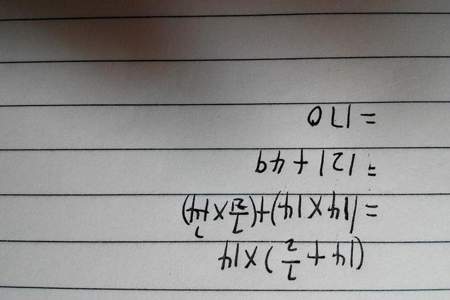 (14 + 7/2) × 14
= (14 × 14) + (7/2 × 14)
= 121 + 49
= 170